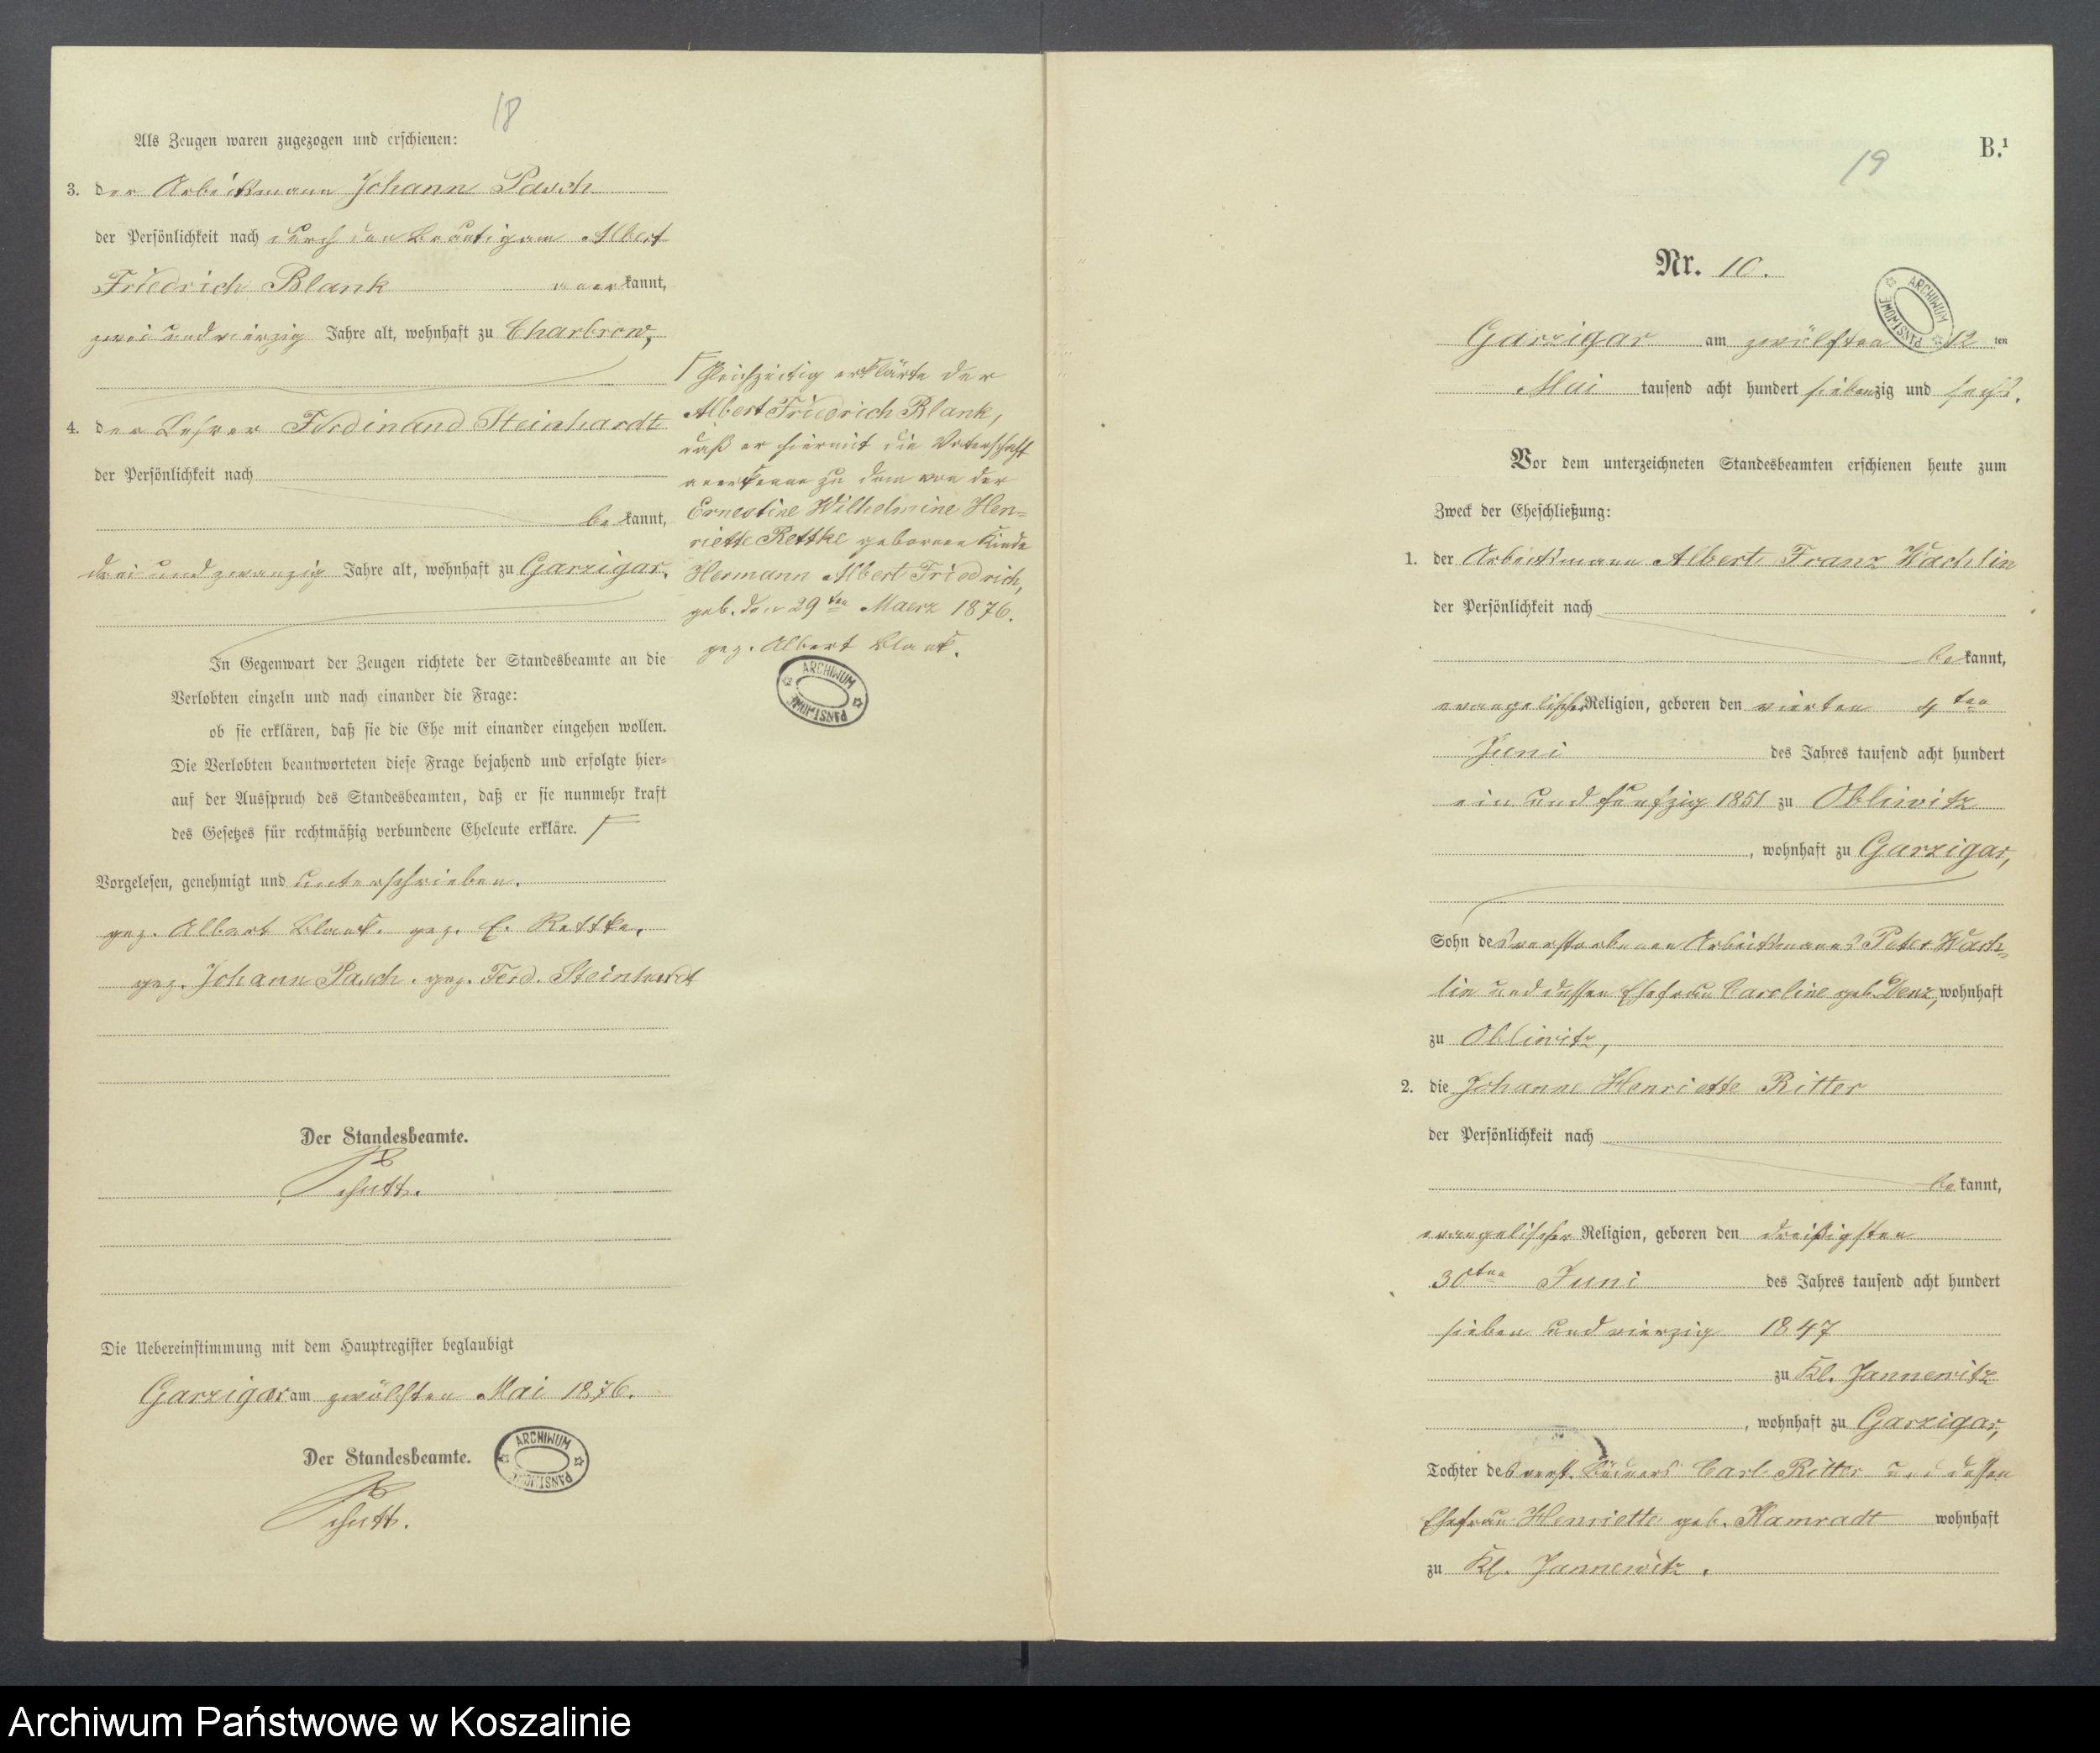 18
Als Zeugen waren zugezogen und erschienen:
3. der Arbeitsmann Johann Pasch
der Persönlichkeit nach durch den Bräutigam Albert
Friedrich Blank anerkannt,
zwei und vierzig Jahre alt, wohnhaft zu Charbrow,
4. der Lehrer Ferdinand Steinhardt
der Persönlichkeit nach
bekannt,
drei und zwanzig Jahre alt, wohnhaft zu Garzigar.
In Gegenwart der Zeugen richtete der Standesbeamte an die
Verlobten einzeln und nach einander die Frage:
ob sie erklären, daß sie die Ehe mit einander eingehen wollen.
Die Verlobten beantworteten diese Frage bejahend und erfolgte hier-
auf der Ausspruch des Standesbeamten, daß er sie nunmehr kraft
des Gesetzes für rechtmäßig verbundene Eheleute erkläre. F
Vorgelesen, genehmigt und unterschrieben.
gez. Albert Blank. gez. E. Rettke.
gez. Johann Pasch. gez. Ferd. Steinhardt
Der Standesbeamte.
Schutt.
Die Uebereinstimmung mit dem Hauptregister beglaubigt
Garzigar am zwölften Mai 1876.
Der Standesbeamte.
ARCHIWUM PAŃSTWOWE
Schutt.
F Gleichzeitig erklärte der
Albert Friedrich Blank,
daß er hiermit die Vaterschaft
anerkenne zu dem von der
Ernestine Wilhelmine Hen=
riette Rettke geborenen Kinde
Hermann Albert Friedrich,
geb. den 29ten Maerz 1876.
gez. Albert Blank.
ARCHIWUM PAŃSTWOWE
B.¹
19
Nr. 10.
ARCHIWUM PAŃSTWOWE
Garzigar am zwölften 12 ten
Mai tausend acht hundert siebenzig und sechs.
Vor dem unterzeichneten Standesbeamten erschienen heute zum
Zweck der Eheschließung:
1. der Arbeitsmann Albert Franz Wachlin
der Persönlichkeit nach
bekannt,
evangelischer Religion, geboren den vierten 4ten
Juni des Jahres tausend acht hundert
ein und fünfzig 1851 zu Obliwitz
, wohnhaft zu Garzigar,
Sohn des verstorbenen Arbeitsmannes Peter Wach=
lin und dessen Ehefrau Caroline geb. Denz, wohnhaft
zu Obliwitz,
2. die Johanne Henriette Ritter
der Persönlichkeit nach
bekannt,
evangelischer Religion, geboren den dreißigsten
30ten Juni des Jahres tausend acht hundert
sieben und vierzig 1847
zu Kl. Jannewitz
, wohnhaft zu Garzigar,
Tochter des verst. Büdners Carl Ritter und dessen
Ehefrau Henriette geb. Kamradt wohnhaft
zu Kl. Jannewitz.
Archiwum Państwowe w Koszalinie